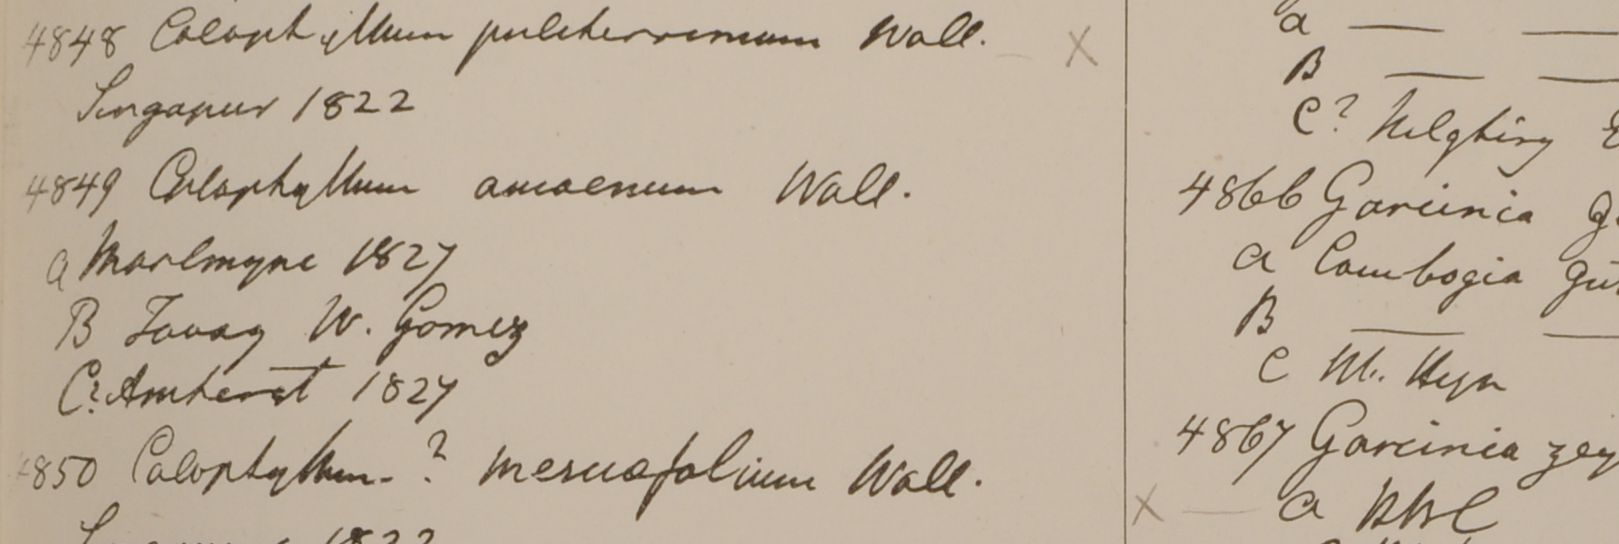 4848 Calophyllum pulcherrimum Wall. X
Singapur 1822
4849 Calophyllum amoenum Wall.
a Moalmyne 1827
B Tavoy W. Gomez
C? Amherst 1827
4850 Calophyllum ? mesuaefolium Wall.
1822
a — —
B — —
C? Nilghiry
4866 Garcinia
a Cambogia
B — —
C M. Heyn
4867 Garcinia zey
X — a HBC